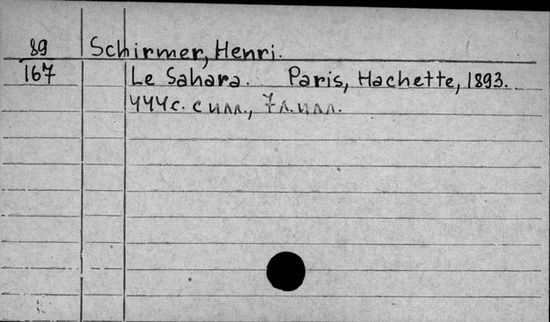 89 Schirmer, Henri.
167 Le Sahara. Paris, Hachette, 1893.
444с. с илл., 7 л. илл.